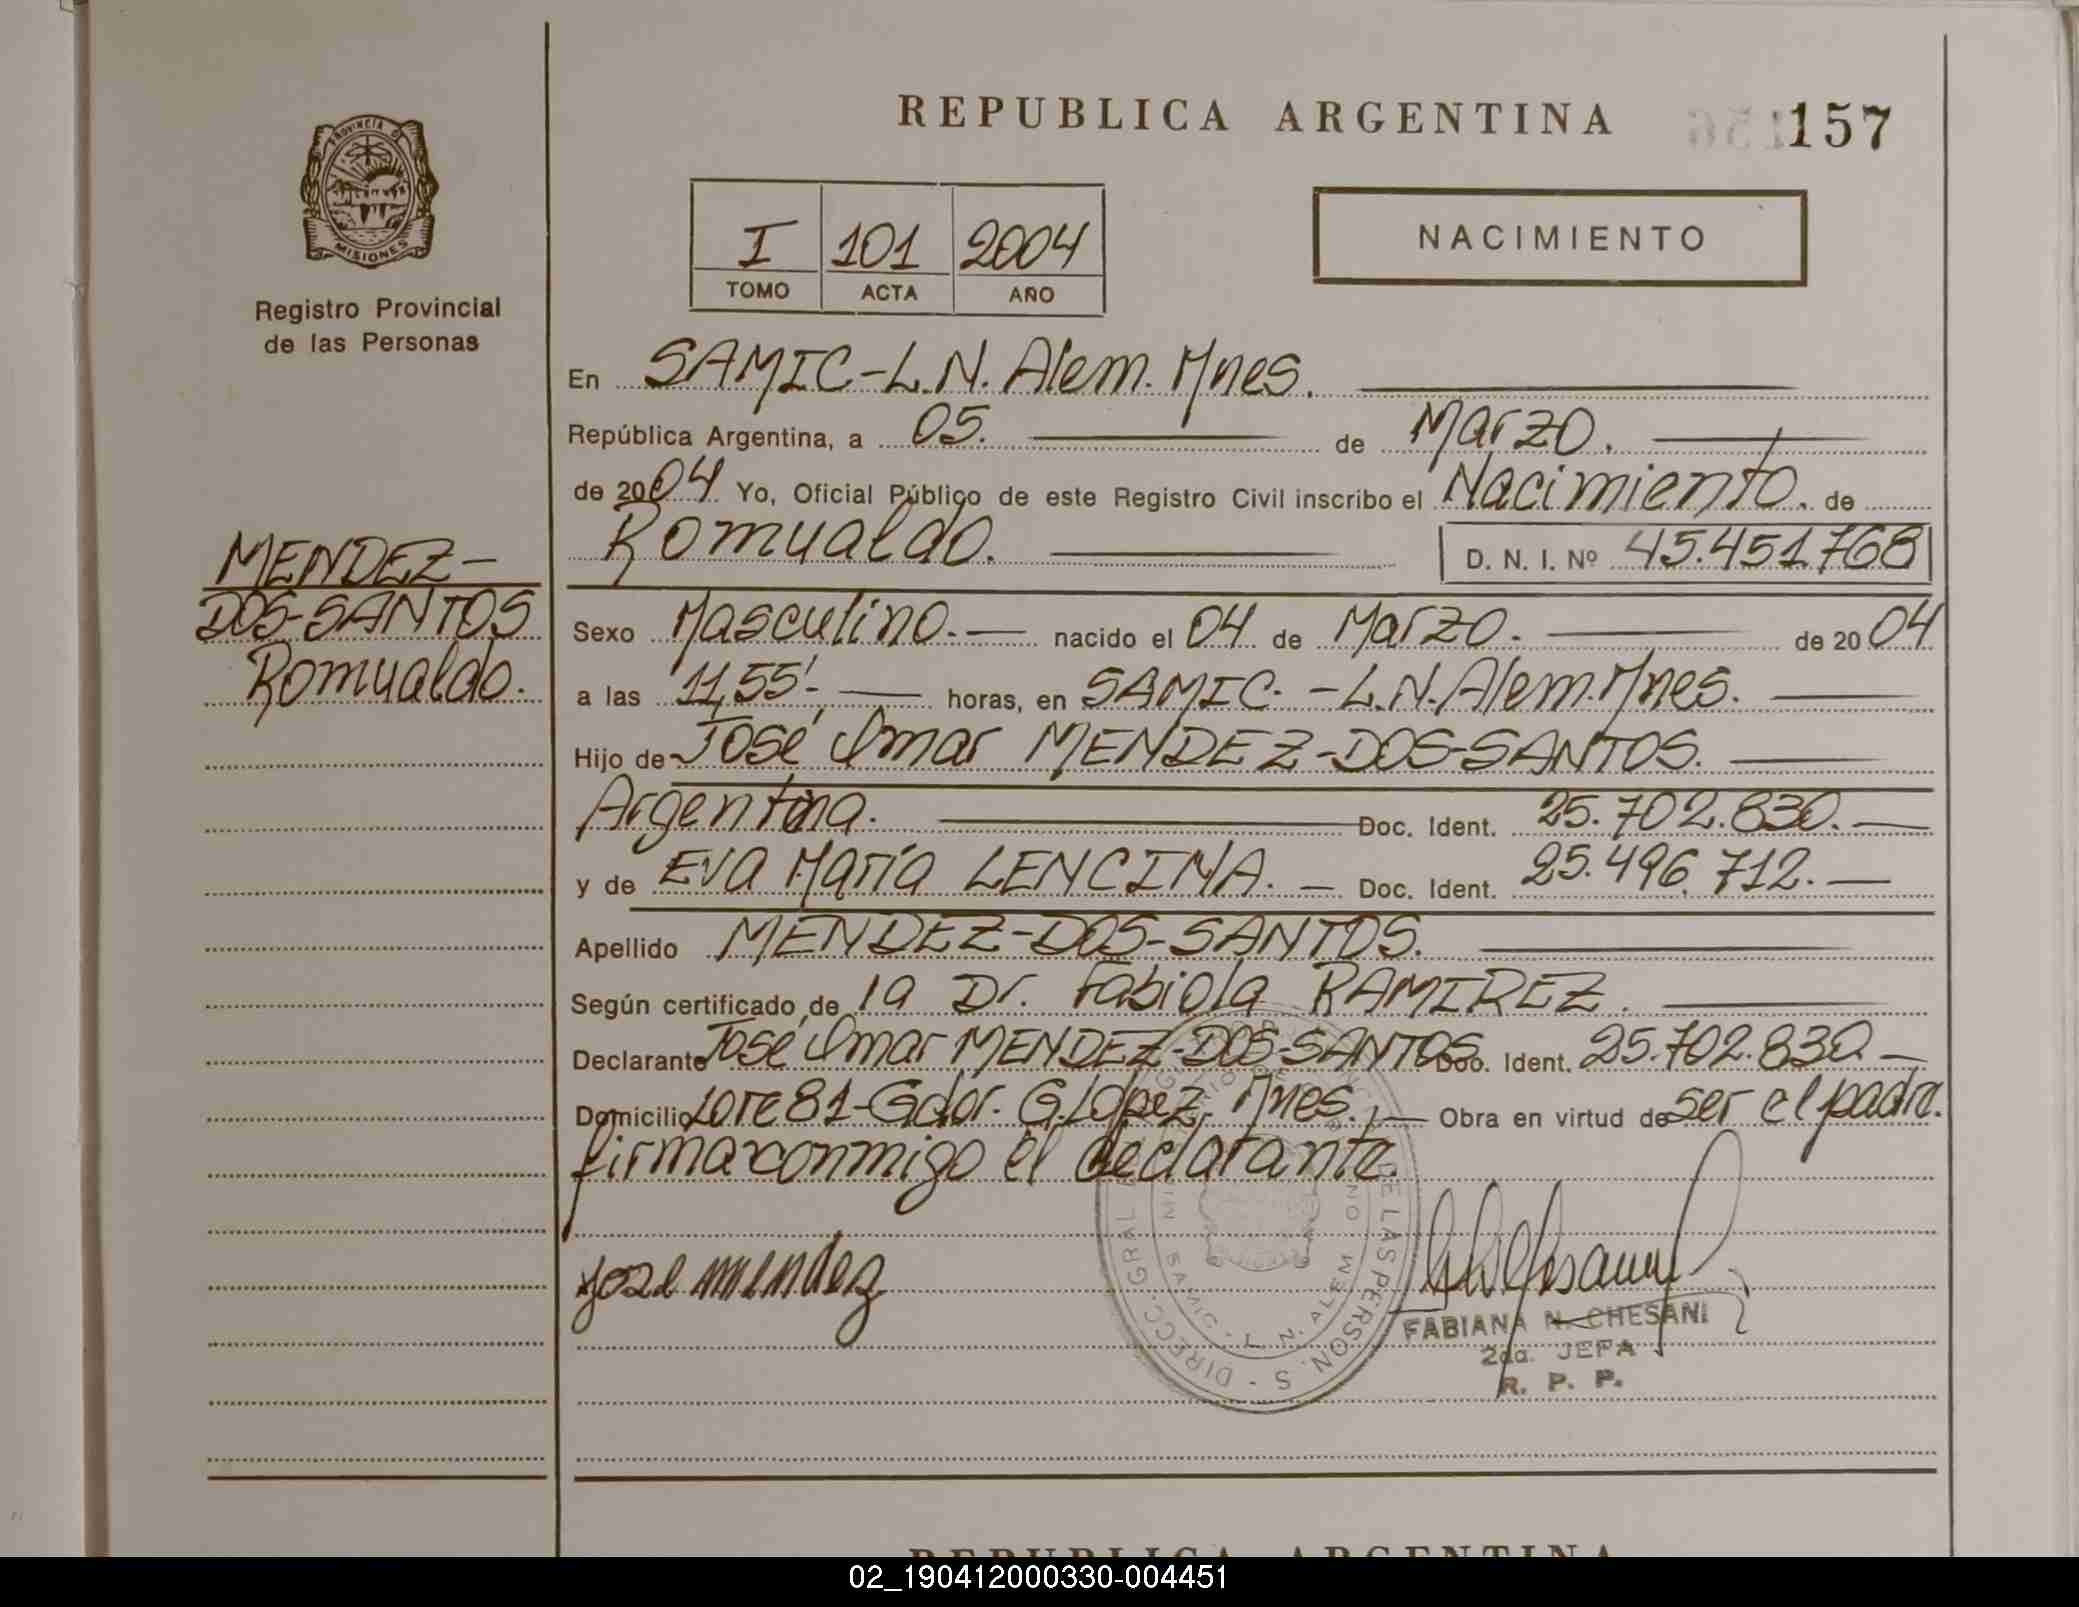 REPUBLICA ARGENTINA
157
PROVINCIA D
MISIONES
Registro Provincial
de las Personas
I 101 2004
TOMO ACTA AÑO
NACIMIENTO
En SAMIC-L.N. Alem. Mnes.
República Argentina, a 05. de Marzo.
de 2004 Yo, Oficial Público de este Registro Civil inscribo el Nacimiento. de
Romualdo. D. N. I. Nº 45.451.768
MENDEZ-
DOS-SANTOS
Romualdo.
Sexo Masculino.- nacido el 04 de Marzo. de 2004
a las 11,55'.- horas, en SAMIC. -L.N. Alem. Mnes.
Hijo de José Omar MENDEZ-DOS-SANTOS.
Argentina. Doc. Ident. 25.702.830.-
y de EVA María LENCINA. - Doc. Ident. 25.496.712.-
Apellido MENDEZ-DOS-SANTOS.
Según certificado de la Dr. Fabiola RAMIREZ.
Declarante José Omar MENDEZ-DOS-SANTOS Doc. Ident. 25.702.830.-
Domicilio Lote 81-Gdor. G.López, Mnes.,- Obra en virtud de ser el padre.
firma conmigo el declarante.
jose mendez
DIRECC. GRAL DE LAS PERSON. S
SAMIC - L. N. ALEM
FABIANA N. CHESANI
2da. JEFA
R. P. P.
REPUBLICA ARGENTINA
02_190412000330-004451